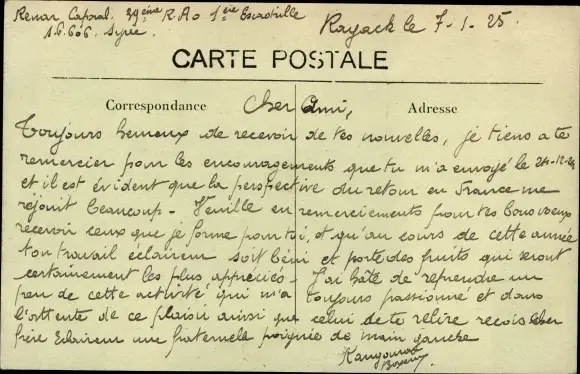 Renar Caporal. 39ème R.A. 1ère Escadrille
S.P. 606. Syrie.
Rayack le 7-1-25.
CARTE POSTALE
Correspondance
Adresse
Cher Ami,
Toujours heureux de recevoir de tes nouvelles, je tiens a te
remercier pour les encouragements que tu m'a envoyé le 24-12-24
et il est évident que la perspective du retour en France me
rejouit beaucoup - Veuille en remerciements pour tes bons voeux
recevoir ceux que je forme pour toi, et qu'au cours de cette année
ton travail éclaireur soit béni et porte des fruits qui seront
certainement les plus appréciés - J'ai hâte de reprendre un
peu de cette activité qui m'a toujours passionné et dans
l'attente de ce plaisir ainsi que celui de te relire reçois cher
frère Eclaireur une fraternelle poignée de main gauche
Kangourou